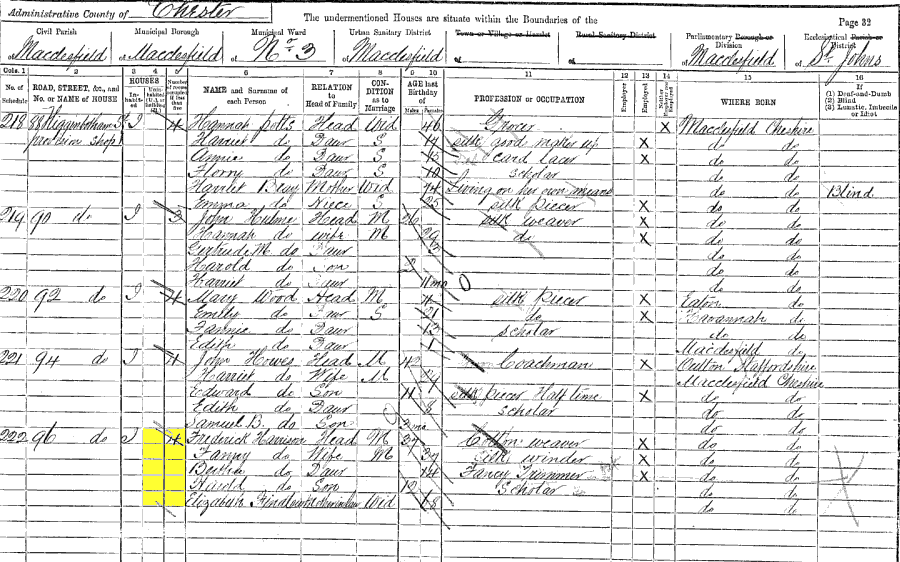 Administrative County of Chester
The undermentioned Houses are situate within the Boundaries of the
Page 32
Civil Parish
of Macclesfield
Municipal Borough
of Macclesfield
Municipal Ward
of No 3
Urban Sanitary District
of Macclesfield
Town or Village or Hamlet
of
Rural Sanitary District
of
Parliamentary Borough or Division
of Macclesfield
Ecclesiastical Parish or District
of St. Johns
Cols. 1 2 3 4 5 6 7 8 9 10 11 12 13 14 15 16
No. of Schedule
ROAD, STREET, &c., and No. or NAME of HOUSE
HOUSES
Inhabited
Uninhabited (U.), or Building (B.)
Number of rooms occupied if less than five
NAME and Surname of each Person
RELATION to Head of Family
CONDITION as to Marriage
AGE last Birthday of
Males Females
PROFESSION or OCCUPATION
Employer
Employed
Neither employer nor employed
WHERE BORN
If
(1) Deaf-and-Dumb
(2) Blind
(3) Lunatic, Imbecile or Idiot
218 88 1 4 Hannah Potts Head Wid 46 Grocer X Macclesfield Cheshire
provision shop Harriet do Daur S 17 silk good maker up X do do
Annie do Daur S 15 card lacer X do do
Florry do Daur S 10 scholar do do
Harriet Mother Wid 74 Living on her own means do do Blind
Emma do Niece S 25 silk piecer X do do
219 90 do 1 3 John Hulme Head M 26 silk weaver X do do
Hannah do wife M 29 do X do do
Gertrude M. do Daur do do
Harold do Son 2 do do
Harriet do Daur 11 mo do do
220 92 do 1 4 Mary Wood Head M silk piecer X Eaton do
Emily do Daur S 21 do X Havannah do
Fannie do Daur 13 scholar do do
Edith do Daur 1 Macclesfield do
221 94 do 1 4 John Howes Head M 42 Coachman X Oulton Staffordshire
Harriet do Wife M Macclesfield Cheshire
Edward do Son 11 silk piecer Half time X do do
Edith do Daur 8 scholar do do
Samuel B. do Son 2 mo do do
222 96 do 1 4 Frederick Harrison Head M 37 Cotton weaver X do do
Fanny do Wife M 37 Silk winder X do do
Bertha do Daur 14 Fancy Trimmer X do do
Harold do Son 12 Scholar do do
Elizabeth Wid 68 do do